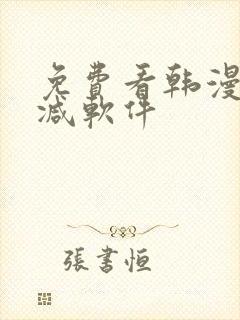 免費看韩漫
减軟件
張書恒